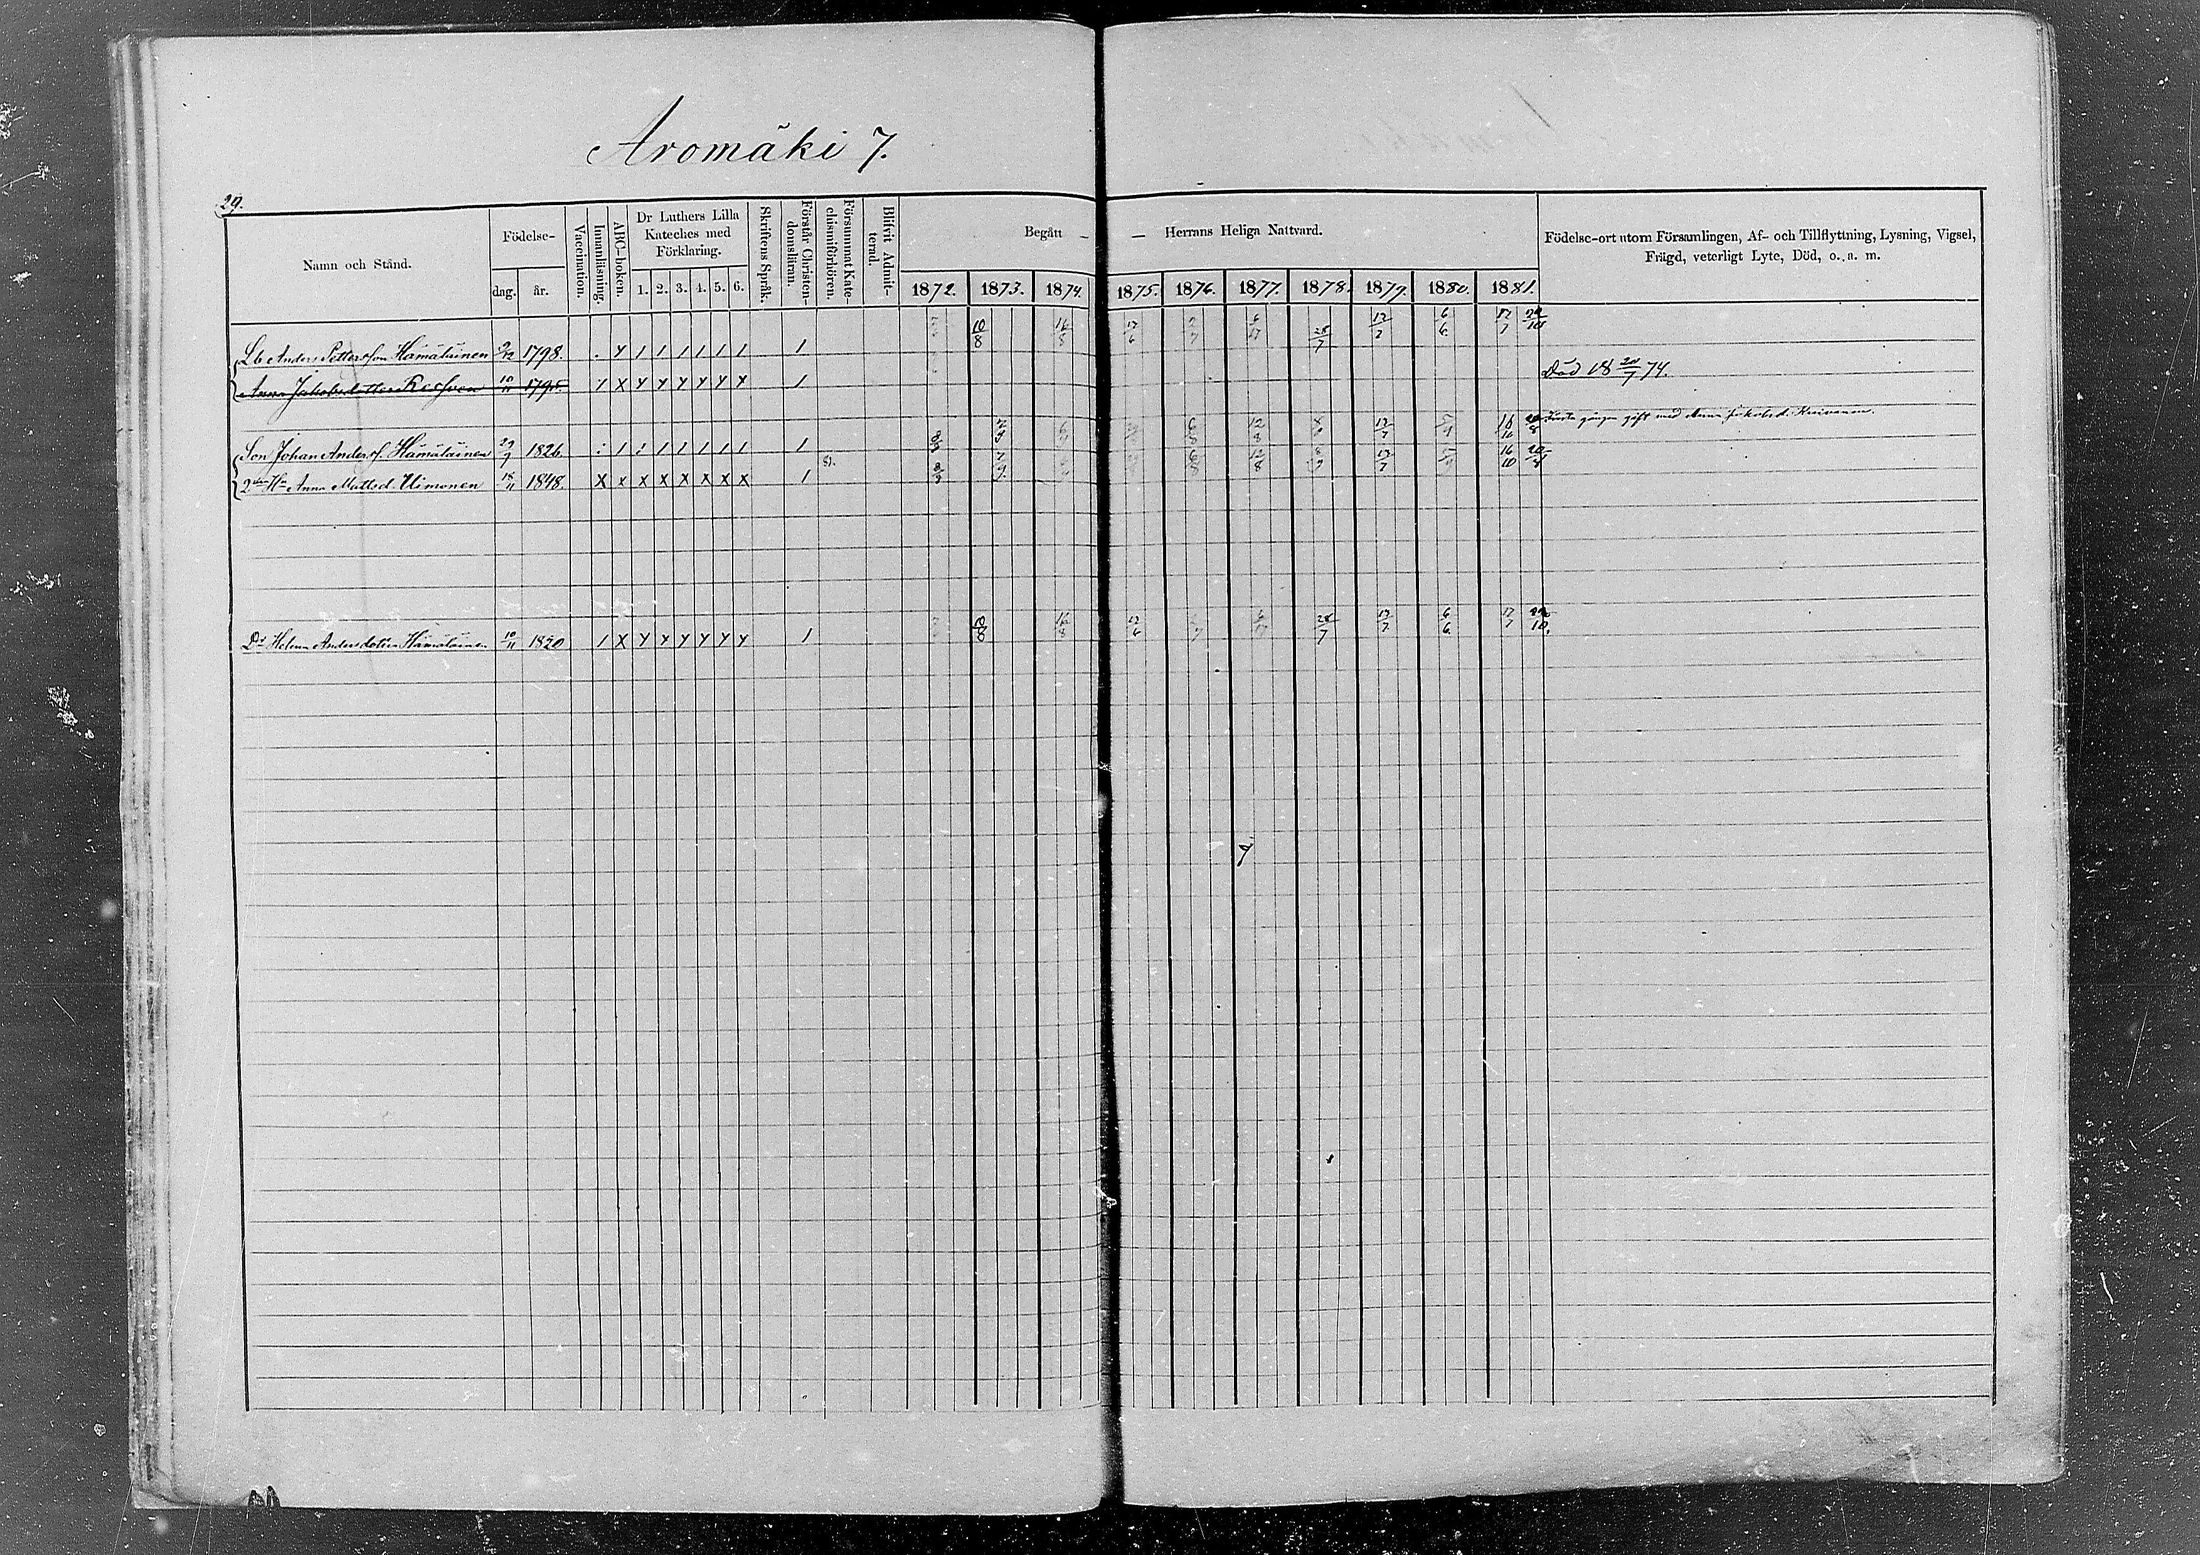 Aromäki 7.
29.
Namn och Stånd.
Födelse-
dag.
år.
Vaccination.
Innanläsning.
ABC-boken.
Dr Luthers Lilla
Kateches med
Förklaring.
1. 2. 3. 4. 5. 6.
Skriftens Språk.
Förstår Christen-
domsläran.
Försummat Kate-
chismiförhören.
Blifvit Admit-
terad.
Begått — — Herrans Heliga Nattvard.
1872. 1873. 1874. 1875. 1876. 1877. 1878. 1879. 1880. 1881.
Födelse-ort utom Församlingen, Af- och Tillflyttning, Lysning, Vigsel,
Frägd, veterligt Lyte, Död, o. a. m.
Lb Anders Pettersson Hämäläinen 9/12 1798. . Y 1 1 1 1 1 1 1 10/8 16/8 13/6 6/17 28/7 13/7 6/6 17/7 20/10
Anna Jakobsdotter 10/11 1795. 1 X Y Y Y Y Y Y 1 Död 18 20/7 74.
Son Johan Anders. Hämäläinen 29/7 1826. : 1 : 1 1 1 1 1 1 8/9 7/9 6/8 12/8 13/7 16/10 20/8 gången gift med Anna Jakobsd.
2dra Hu Anna Mattsd. Uimonen 18/11 1848. X X X X X X X X 1 81. 8/9 7/9 6/8 12/8 8/9 13/7 16/10 20/8
Dr Helena Andersdotter Hämäläinen 10/11 1820 1 X Y Y Y Y Y Y 1 10/8 16/8 13/6 6/17 28/7 13/7 6/6 17/7 20/10.